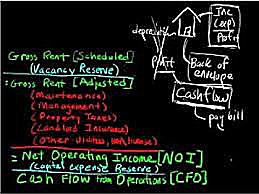 Gross Rent [Scheduled]
(Vacancy Reserve)
= Gross Rent [Adjusted]
(Maintenance)
(Management)
(Property Taxes)
(Landlord Insurance)
(Other utilities,
= Net Operating Income [NOI]
(Capital expense Reserve)
Cash Flow from Operations [CFO]
Inc
(exp)
depreciation
Back of
envelope
Cashflow
pay bill